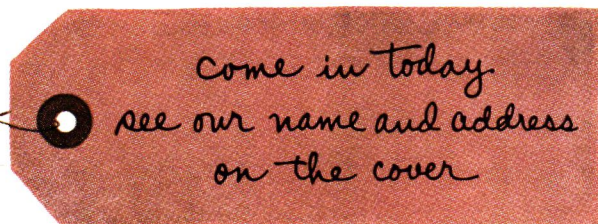 come in today
see our name and address
on the cover